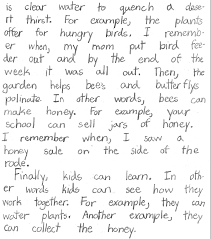 is clear water to quench a dese-
rt thirst. For example, the plants
offer for hungry birds. I rememb-
er when, my mom put bird fee-
der out and by the end of the
week it was all out. Then, the
garden helps bees and butterflys
polinate. In other words, bees can
make honey. For example, your
school can sell jars of honey.
I remember when, I saw a
honey sale on the side of the
rode.
Finally, kids can learn. In oth-
er words kids can see how they
work together. For example, they can
water plants. Another example, they
can collect the honey.